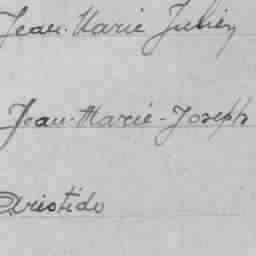 Jean-Marie Julien
Jean-Marie-Joseph
Aristide